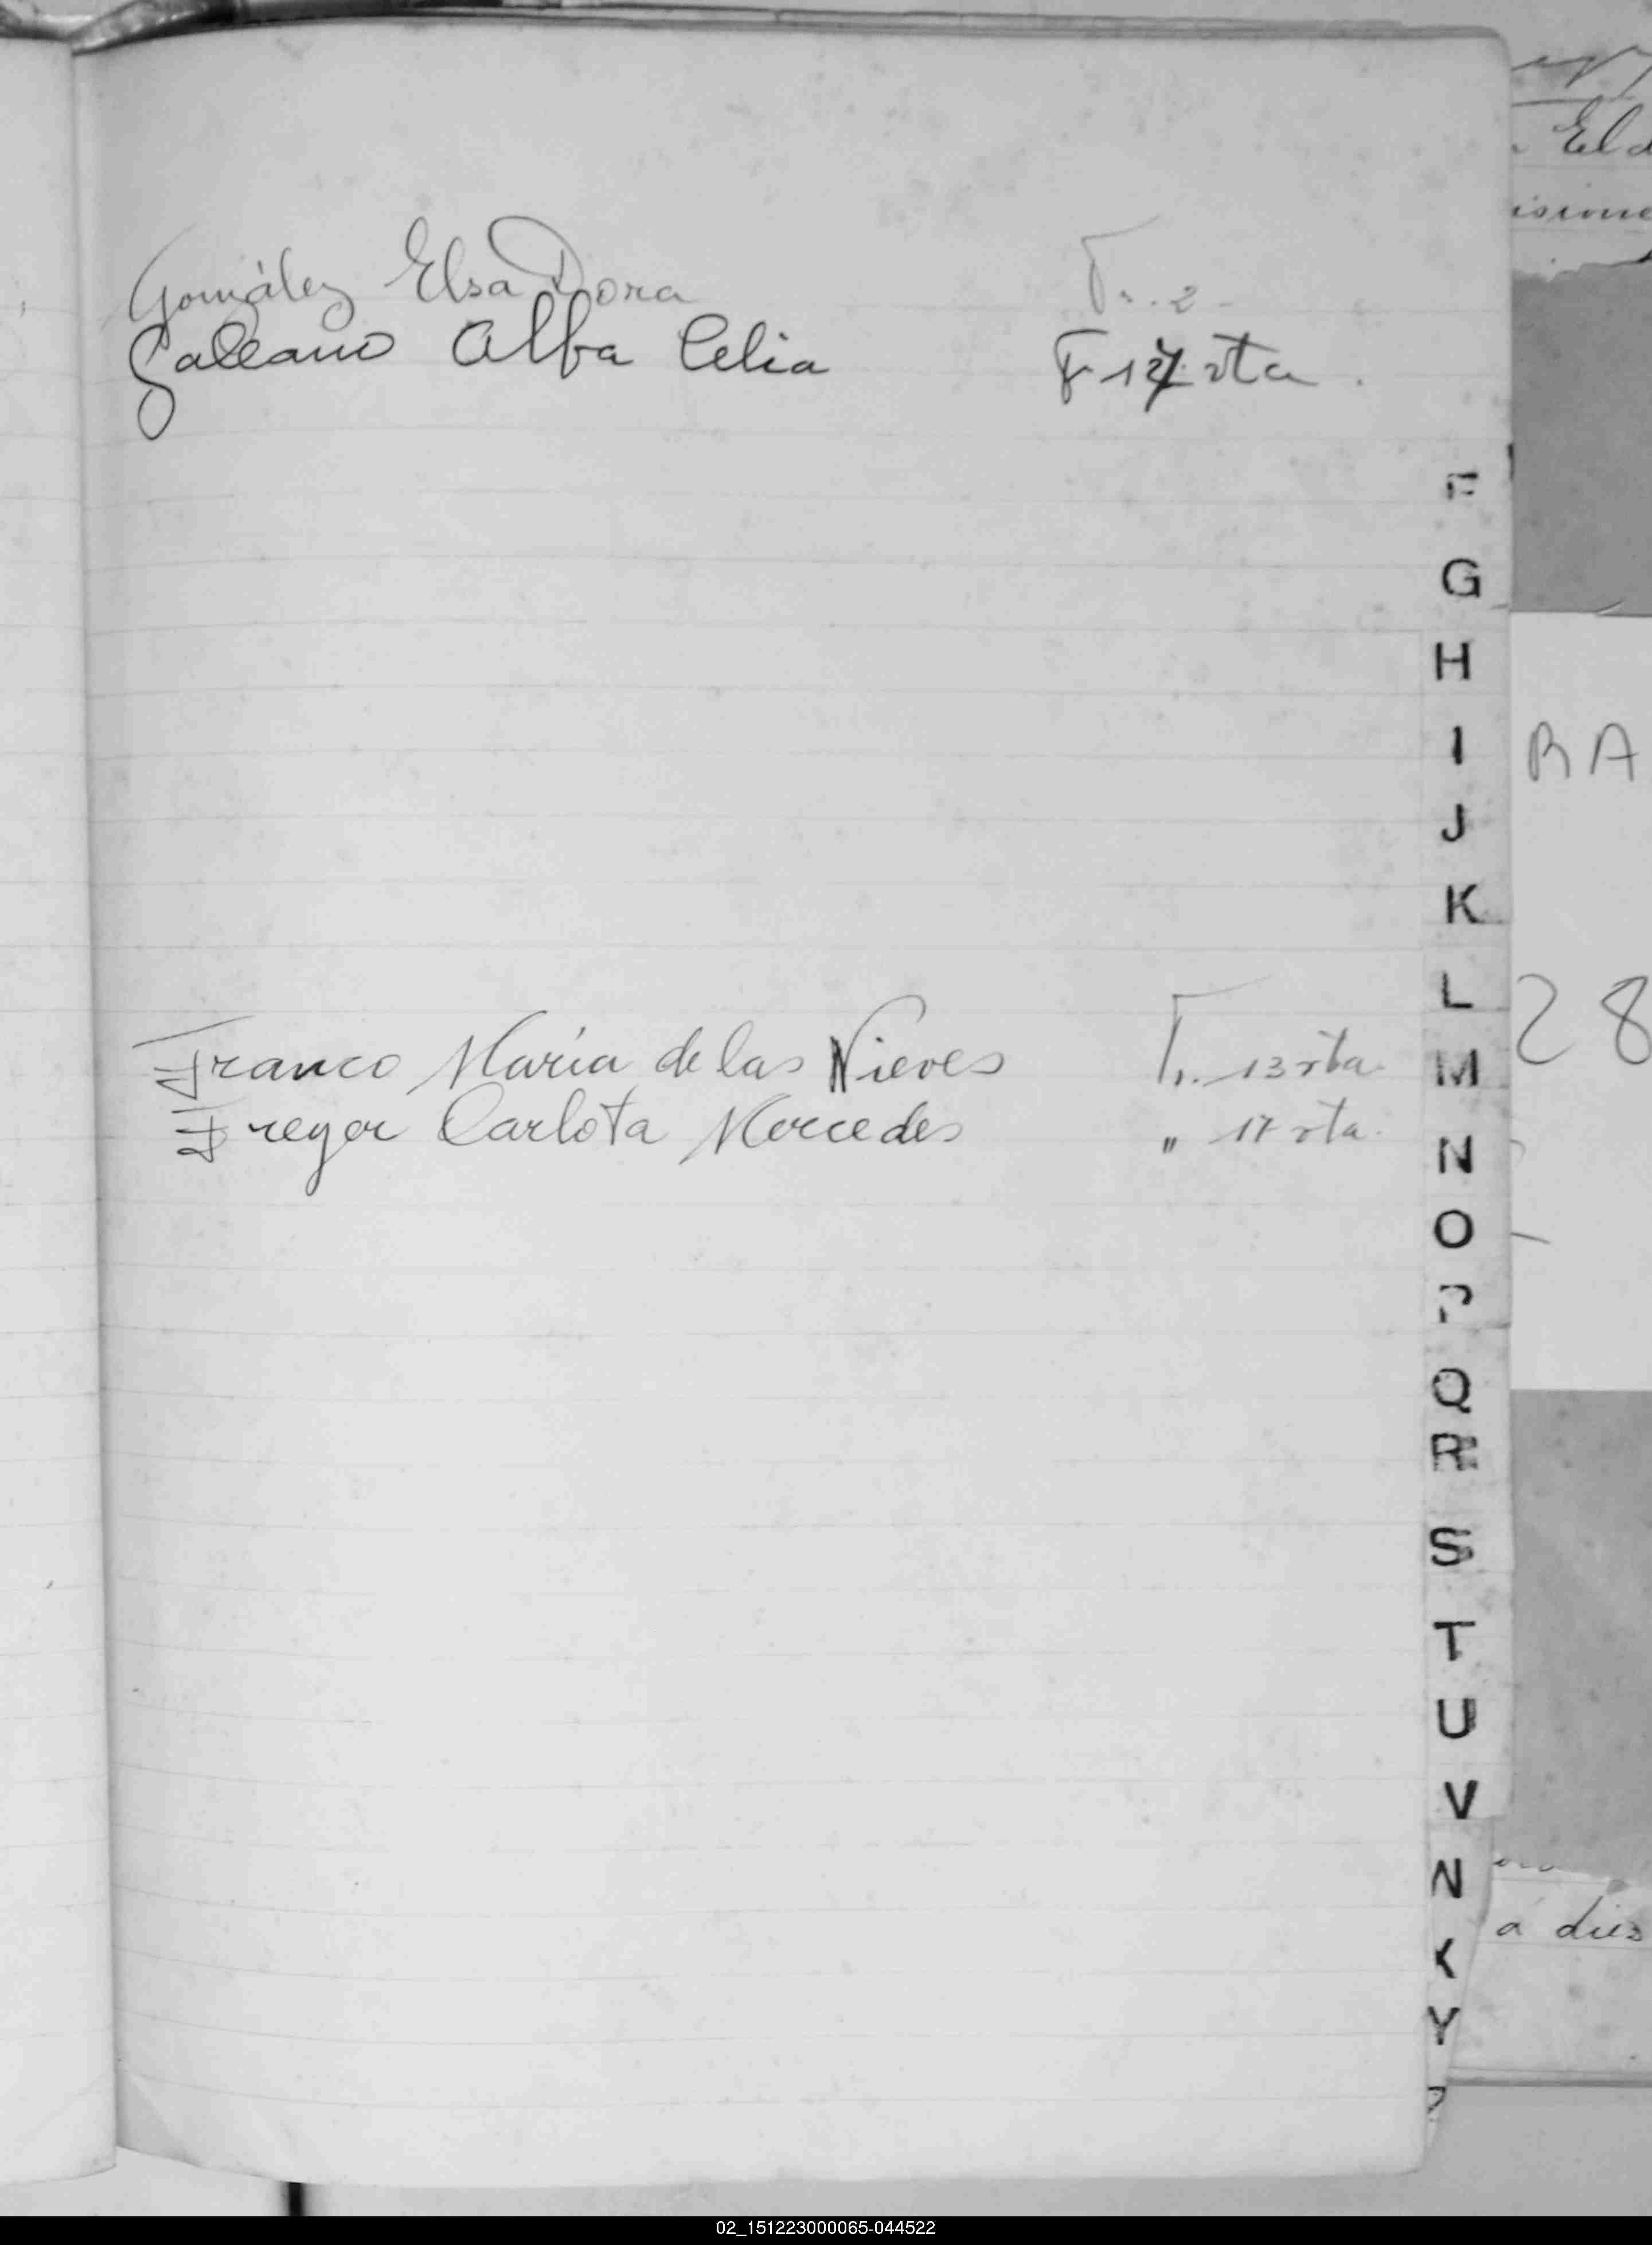 González Elsa Dora F. 2-
Galeano Alba Celia F 17 vta.
Franco María de las Nieves F. 13 vta.
Freyer Carlota Mercedes " 17 vta.
F
G
H
I
J
K
L
M
N
O
P
Q
R
S
T
U
V
N
Y
Eld
RA
28
a dies
02_151223000065-044522